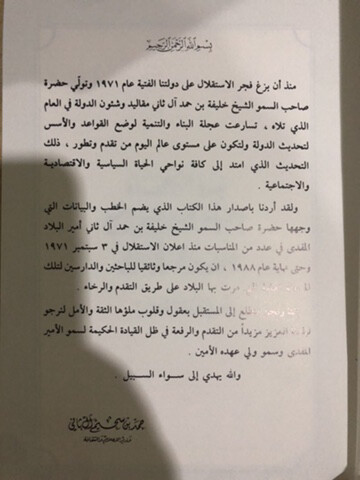 بسم الله الرحمن الرحيم
منذ أن بزغ فجر الاستقلال على دولتنا الفتية عام ١٩٧١ وتولّي حضرة
صاحب السمو الشيخ خليفة بن حمد آل ثاني مقاليد وشئون الدولة في العام
الذي تلاه ، تسارعت عجلة البناء والتنمية لوضع القواعد والأسس
لتحديث الدولة ولتكون على مستوى عالم اليوم من تقدم وتطور ، ذلك
التحديث الذي امتد إلى كافة نواحي الحياة السياسية والاقتصادية
والاجتماعية .
ولقد أردنا باصدار هذا الكتاب الذي يضم الخطب والبيانات التي
وجهها حضرة صاحب السمو الشيخ خليفة بن حمد آل ثاني أمير البلاد
المفدى في عدد من المناسبات منذ اعلان الاستقلال في ٣ سبتمبر ١٩٧١
وحتى نهاية عام ١٩٨٨ ، ان يكون مرجعا وثائقيا للباحثين والدارسين لتلك
مرت بها البلاد على طريق التقدم والرخاء .
إلى المستقبل بعقول وقلوب ملؤها الثقة والأمل لنرجو
العزيز مزيداً من التقدم والرفعة في ظل القيادة الحكيمة لسمو الأمير
المفدى وسمو ولي عهده الأمين .
والله يهدي إلى سواء السبيل .